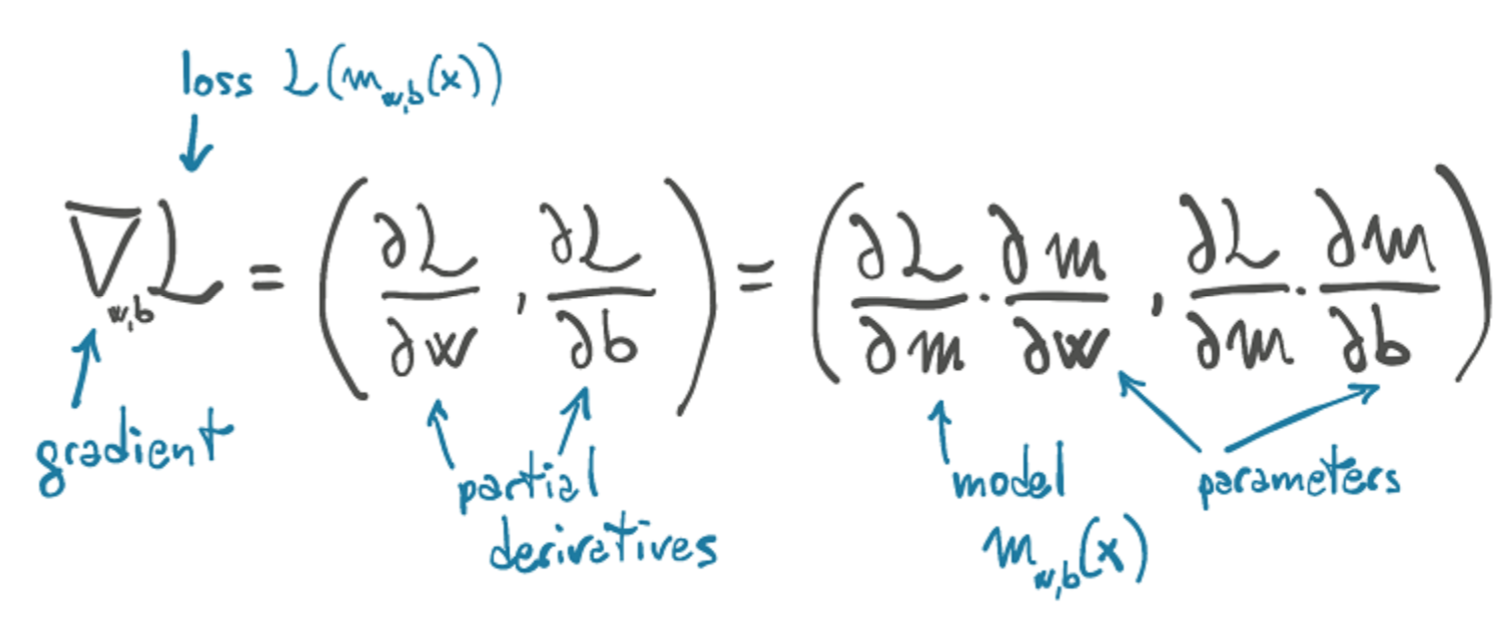 loss L(m_w,b(x))
∇_w,b L = (∂L/∂w, ∂L/∂b) = (∂L/∂m · ∂m/∂w, ∂L/∂m · ∂m/∂b)
gradient
partial
derivatives
model
m_w,b(x)
parameters